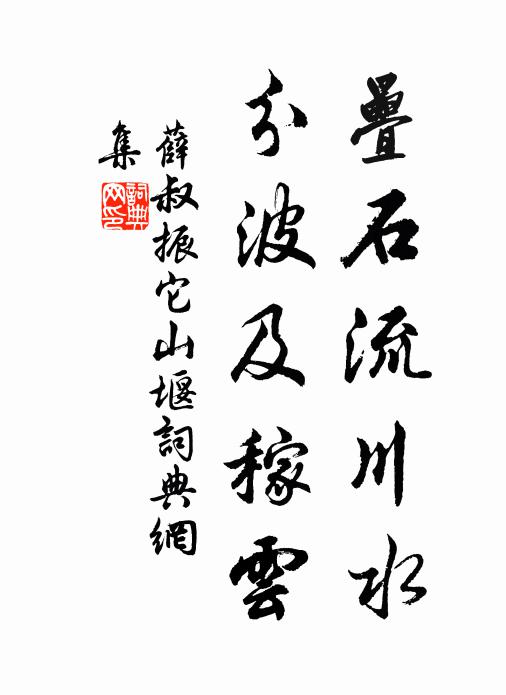 疊石流川水
分波及稼雲
薛叔振它山堰詞典網
集
詞典網印